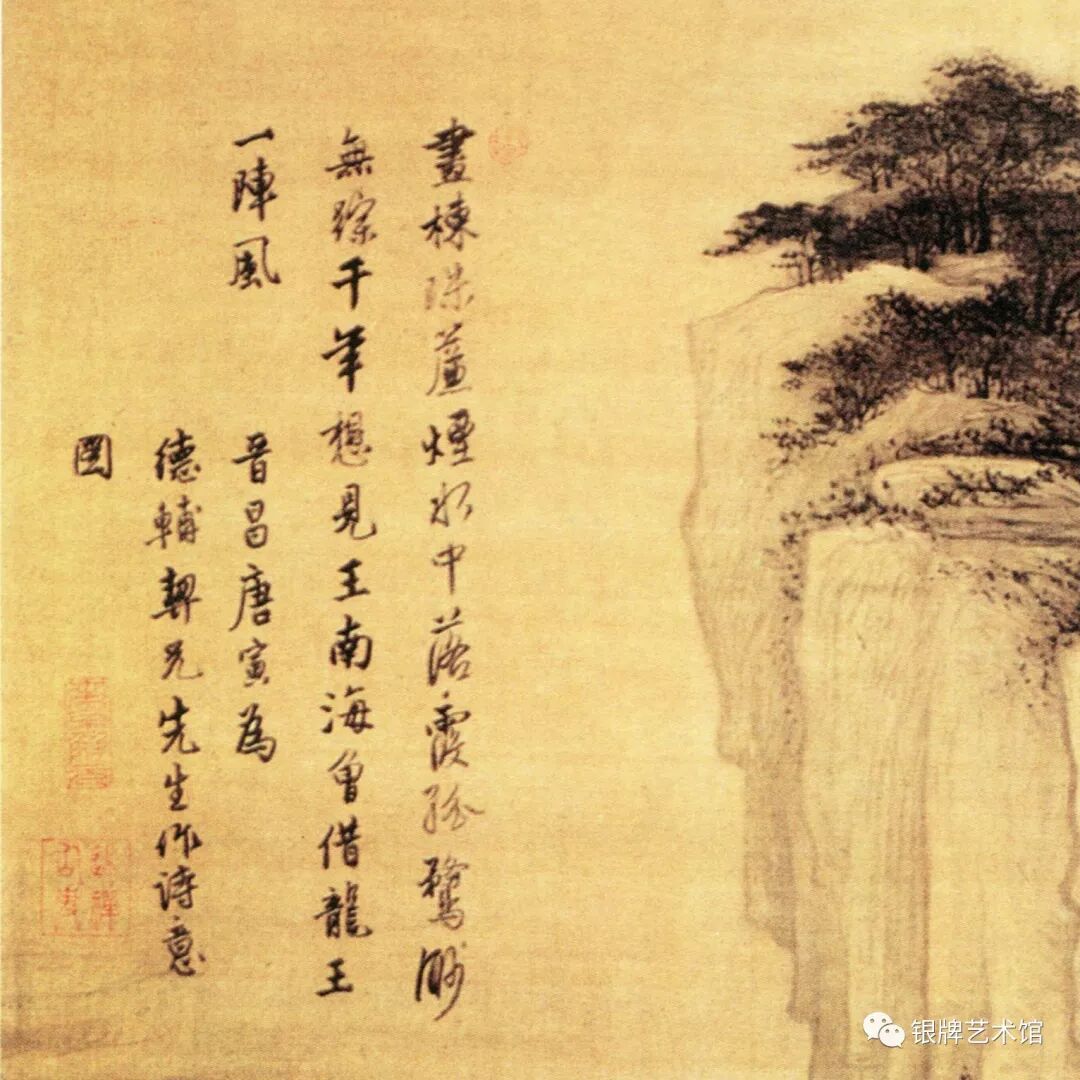 畫棟珠簾煙水中落霞孤鶩眇
無踪千年想見王南海曾借龍王
一陣風
晉昌唐寅為
德輔契兄先生作詩意
圖
银牌艺术馆